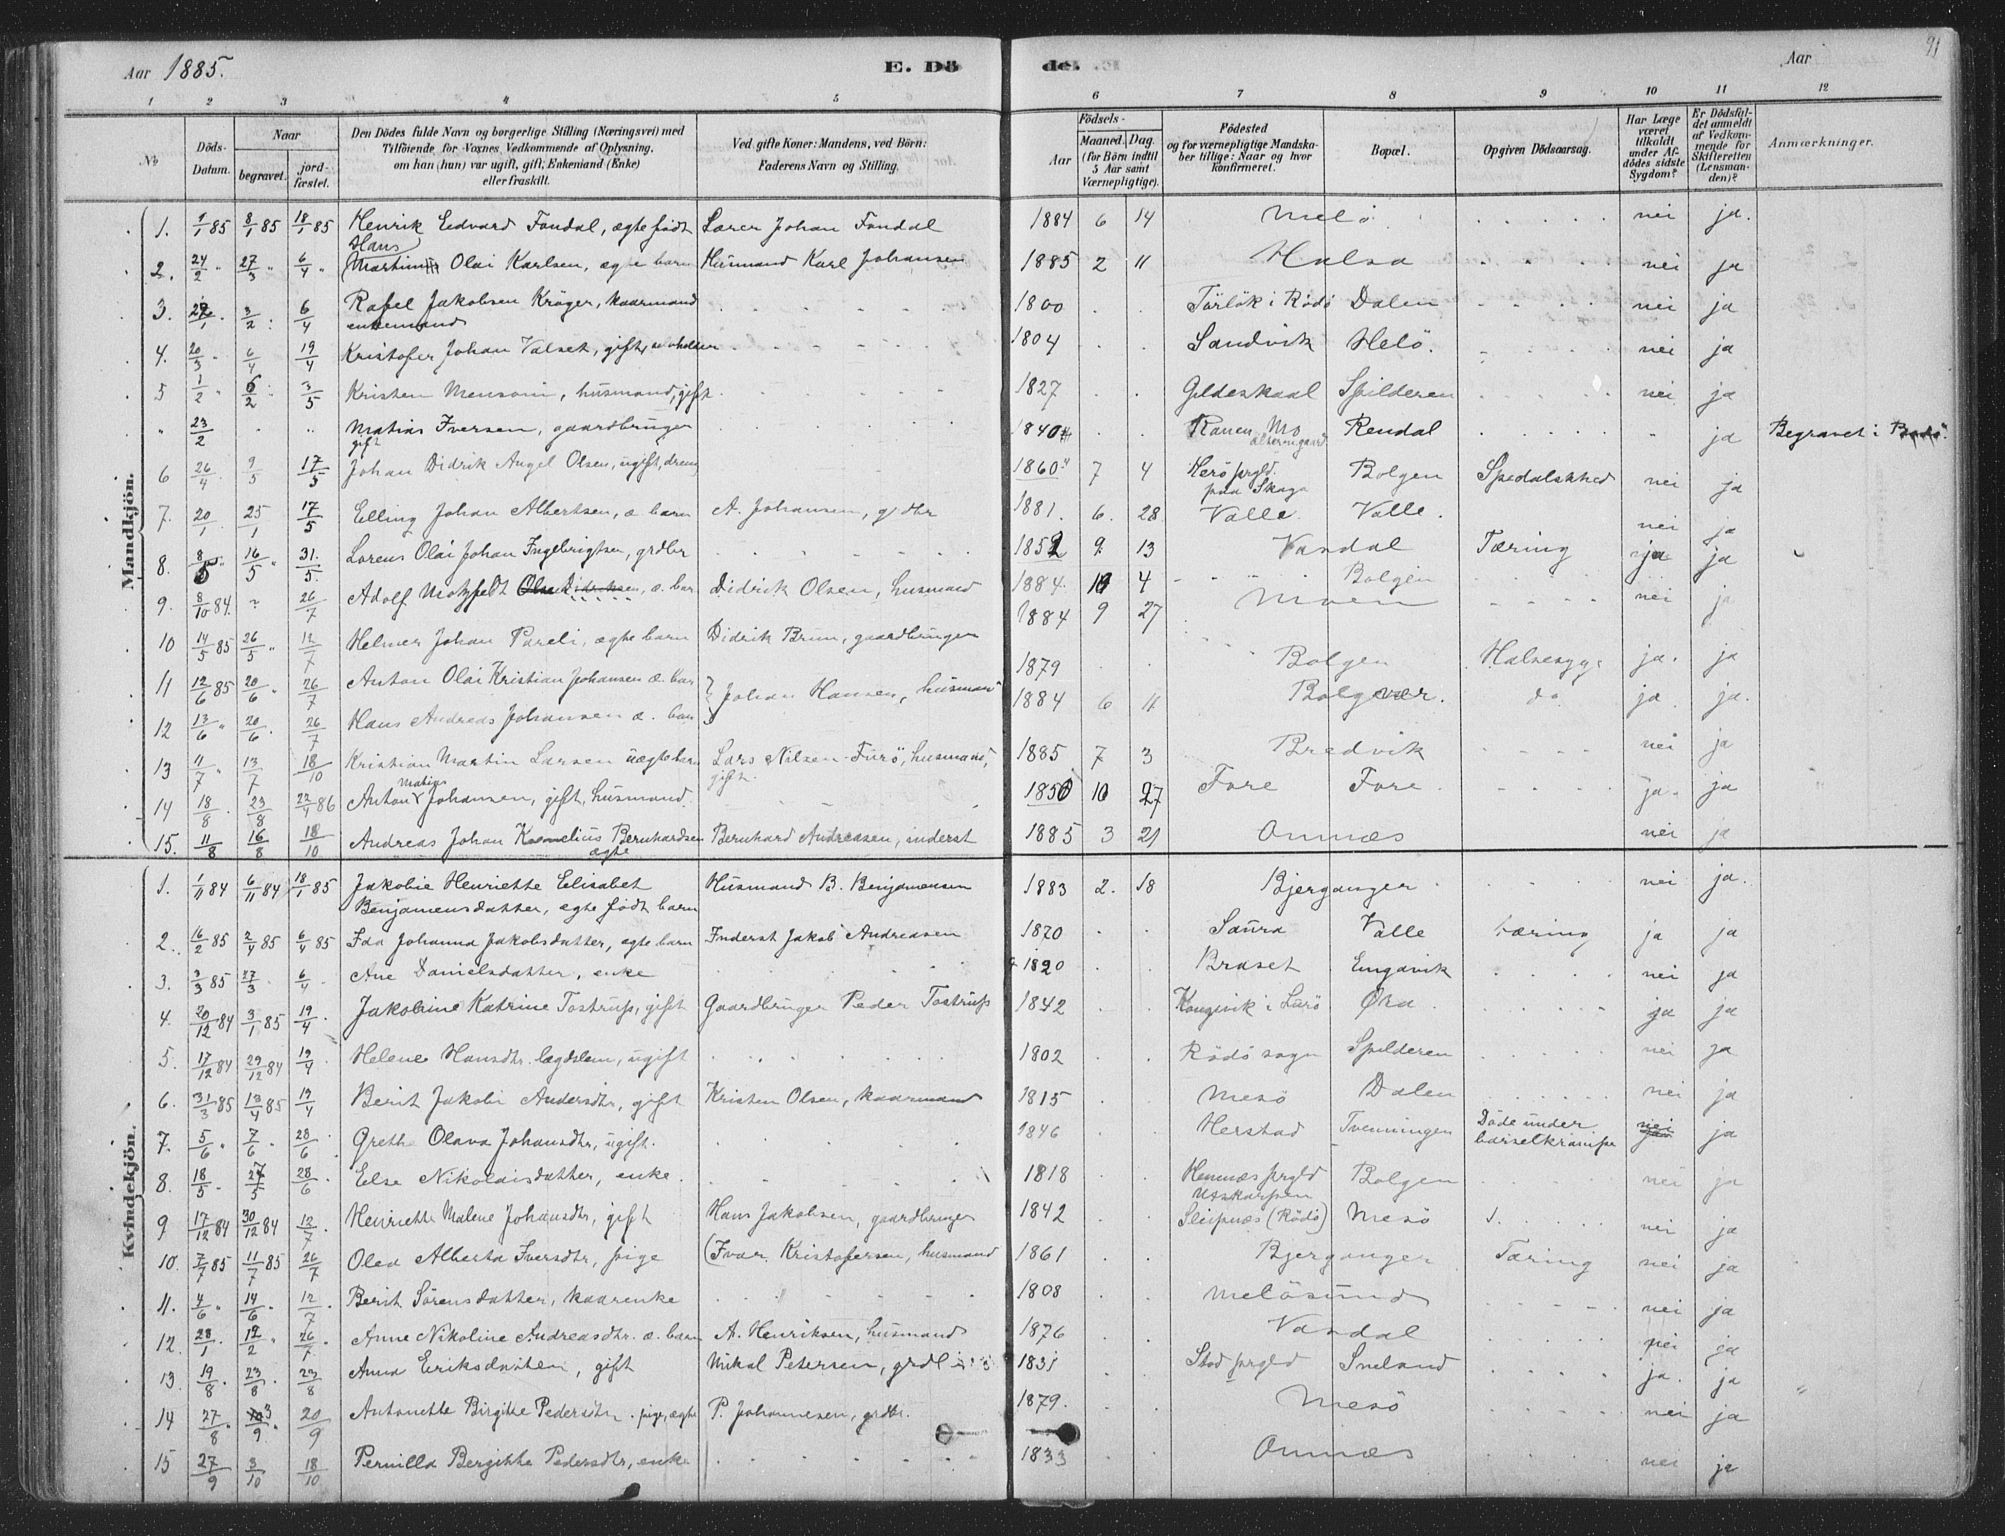 Aar 1885. E. Dö
de. Aar 91
1 2 3 4 5 6 7 8 9 10 11 12
No
Döds-Datum.
Naar
begravet.
jord-fæstet.
Den Dödes fulde Navn og borgerlige Stilling (Næringsvei) med
Tilföiende for Voxnes Vedkommende af Oplysning,
om han (hun) var ugift, gift, Enkemand (Enke)
eller fraskilt.
Ved gifte Koner: Mandens, ved Börn:
Faderens Navn og Stilling.
Födsels-
Aar
Maaned. Dag.
(for Börn indtil 5 Aar samt Værnepligtige).
Födested
og for værnepligtige Mandska-
ber tillige: Naar og hvor
konfirmeret.
Bopæl.
Opgiven Dödsaarsag.
Har Læge været tilkaldt under Af-dödes sidste Sygdom?
Er Dödsfal-det anmeldt af Vedkom-mende for Skifteretten (Lensman-den)?
Anmærkninger.
Mandkjön.
1. 1/1 85 8/1 85 18/1 85 Henrik Edvard Fondal, ægte født Lærer Johan Fondal 1884 6 14 Melø nei ja.
Hans
2. 24/2 " 27/3 " 6/4 " Martin Olai Karlsen, ægte barn Husmand Karl Johansen 1885 2 11 Halsa nei ja
3. 3/2 6/4 Rafel Jakobsen Krøger, kaarmand 1800 i Rødø Dalen nei ja
enkemand
4. 20/3 " 6/4 19/4 Kristofer Johan Valset, gift 1804 Sandvik Helö. nei ja
5 1/2 " 6/2 3/5 Kristen Mensoni, husmand, gift 1827 Gildeskaal Spilderen nei ja
" 23/2 " " Matias Iversen, gaardbruger 1840 Ranen Mo Rendal ja Begravet i Bodö.
gift
6 26/4 9/5 17/5 Johan Didrik Angel Olsen, ugift, dreng 1860 7 4 Herø prgld. Bolgen Spedalskhed nei ja
paa Skaga
7. 20/1 25/1 17/5 Elling Johan Albertsen, æ. barn A. Johansen, gdbr 1881. 6. 28 Valle Valle. nei ja
8. 8/5 " 16/5 " 31/5. Lorens Olai Johan Ingebrigtsen, grdbr 1852 9. 13 Vasdal Tæring ja ja
9. 8/10 84. ? 26/7 Adolf Motzfeldt Didriksen, æ. barn Didrik Olsen, husmand 1884. 10 4 Bolgen nei ja
10 14/5 85 26/5 " 12/7 Helmer Johan Pareli, ægte barn Didrik Brun, gaardbruger 1884 9 27 Moen
11 12/6 85 20/6 " 26/7 Anton Olai Kristian Johansen æ. barn } Johan Hansen, husmand 1879 Bolgen Halsesyge ja. ja
12 13/6 " 20/6 . 26/7 Hans Andreas Johansen æ. barn 1884 6 11 Bolgvær. do ja ja.
13 11/7 " 13/7 18/10 Kristian Martin Larsen uægte barn Lars Nilsen Furø, husmand, 1885 7 3 Bredvik nei ja
gift.
Matias
14 18/8 . 23/8 22/4 86 Anton Johansen, gift, husmand. 1850 10 27 Fore Fore. ja. ja
15. 11/8 16/8 18/10 Andreas Johan Kornelius Bernhardsen Bernhard Andreasen, inderst 1885 3 21 Onnæs nei ja
ægte
Kvindekjön.
1. 1/11 84 6/11 84 18/1 85 Jakobie Henriette Elisabet Husmand B. Benjamensen 1883 2. 18 Bjerganger nei ja.
Benjamensdatter, ægte født barn
2. 16/2 85 2/4 85 6/4 85 Ida Johanna Jakobsdatter, ægte barn Inderst Jakob Andreasen 1870 Saura Valle tæring ja ja
3. 3/3 85 27/3 . 6/4 . Ane Danielsdatter, enke 1820 Braset Engavik nei ja
4. 20/12 84 3/1 85 19/4 . Jakobine Katrine Tostrup, gift Gaardbruger Peder Tostrup 1842 Kongsvik i Lurø Øra ja ja
5. 17/12 84 29/12 84 19/4 . Helene Hansdtr. lægdslem, ugift 1802 Rødø sogn Spilderen nei ja
6. 31/3 85 13/4 85 19/4 Berit Jakobi Andersdtr, gift Kristen Olsen, kaarmand 1815 Mesø Dalen nei ja
7. 5/6 " 7/6 " 28/6 Grethe Olava Johansdtr, ugift. 1846 Herstad Tvenningen Døde under nei ja
barselkrampe
8. 18/5 . 27/5 . 28/6 . Else Nikolaisdatter, enke. 1818 Hemnæs prgld Bolgen nei ja
Utskarpen
9 17/12 84 30/12 84 12/7 . Henriette Malene Johansdtr, gift Hans Jakobsen, gaardbruger 1842 Sleipnæs (Rødø) Mesø nei ja
10. 7/7 85 11/7 85 26/7 Olea Alberta Iversdtr, pige (Ivar Kristofersen, husmand 1861 Bjerganger Tæring nei ja
11. 4/6 " 14/6 " 12/7 . Berit Sørensdatter, kaarenke 1808 Meløsund nei ja
12. 28/1 . 12/2 " 26/1 Anne Nikoline Andreasdtr. æ. barn A. Henriksen, husmand 1876 Vasdal nei ja
13. 19/8 . 23/8 . 23/8 Anna Eriksdatter, gift Mikal Petersen, grdbr 1831 Stod prgld Sneland ja. ja
14 27/8 . 3/9 . 20/9 Antonette Birgitte Pedersdtr. pige, ægte P. Johannesen, grdbr. 1879. Mesø nei ja
15 27/9 3/10 18/10 Pernilla Bergitte Pedersdtr, enke 1833 Onnæs nei ja